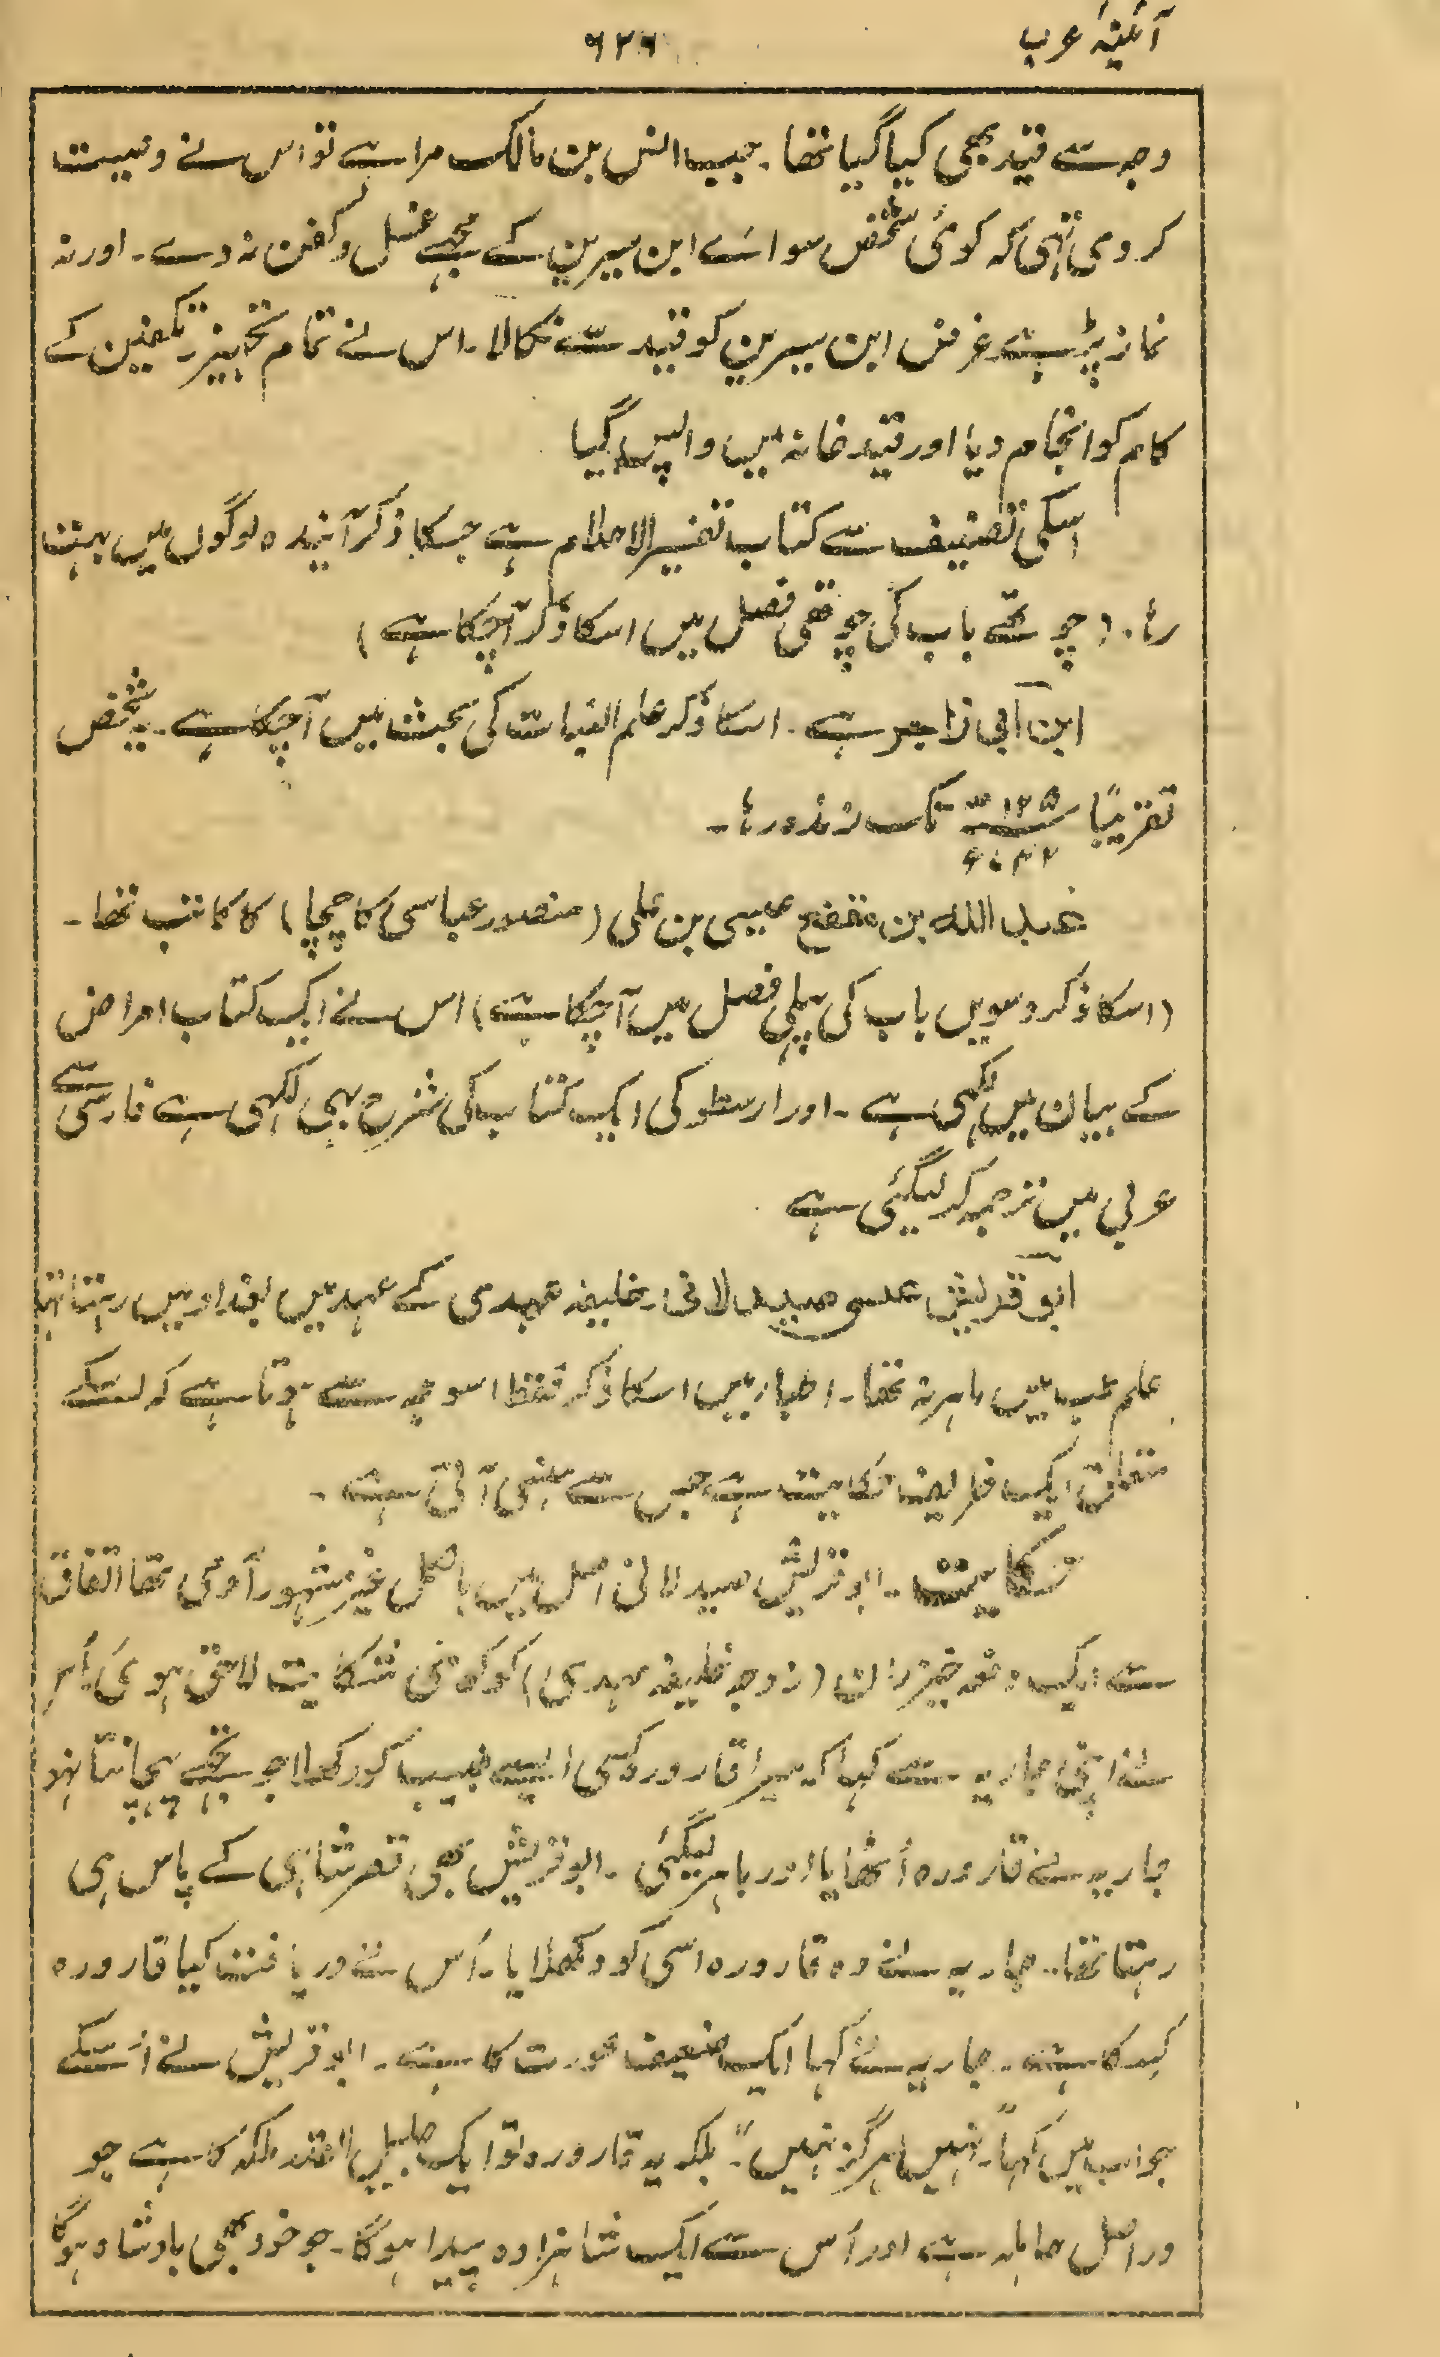 آئینہ عرب
۶۲۶
وجہ سے قید بھی کیا گیا تھا۔ جب انس بن مالک مرا ہے تو اس نے وصیت
کر دی تہی کہ کوئی شخص سوائے ابن سیرین کے مجہے غسل و کفن نہ دے۔ اور نہ
نماز پڑہے غرض ابن سیرین کو قید سے نکالا۔ اس نے تمام تجہیز تکفین کے
کام کو انجام دیا اور قید خانہ میں واپس گیا
اسکی تصنیف سے کتاب تفسیر الاحلام ہے جسکا ذکر آیندہ لوگوں میں بہت
رہا۔ (چوتھے باب کی چوتھی فصل میں اسکا ذکر آچکا ہے)
ابن ابی زاجر ہے۔ اسکا ذکر علم النبات کی بحث میں آچکا ہے۔ یہ شخص
تقریباً ۱۲۵ھ تک زندہ رہا۔
عبد اللہ بن مقفع عیسی بن علی (منصور عباسی کا چچا) کا کاتب تھا۔
(اسکا ذکر دسویں باب کی پہلی فصل میں آچکا ہے) اس نے ایک کتاب امراض
کے بیان میں لکہی ہے۔ اور ارسطو کی ایک کتاب کی شرح بہی لکہی ہے فارسی سے
عربی میں ترجمہ کر لیگئی ہے
ابو قریش عیسی صیدلانی۔ خلیفہ مہدی کے عہد میں بغداد میں رہتا تہا
علم طب میں ماہر نہ تھا۔ اطبا میں اسکا ذکر فقط اسوجہ سے ہوتا ہے کہ اسکے
متعلق ایک ظرافت حکایت ہے جس سے ہنسی آتی ہے۔
حکایت۔ ابو قریش صیدلانی اصل میں بالکل غیر مشہور آدمی تھا اتفاق
سے ایک دفعہ خیزران (زوجہ خلیفہ مہدی) کو کوئی شکایت لاحق ہوئی اُس
نے اپنی جاریہ سے کہا کہ میرا قارورہ کسی ایسے طبیب کو دکھلا جو تجہے پہچانتا نہو
جاریہ نے قارورہ اُٹھایا اور باہر لیگئی۔ ابو قریش بھی قصر شاہی کے پاس ہی
رہتا تھا۔ جاریہ نے وہ قارورہ اسی کو دکھلایا۔ اُس نے دریافت کیا قارورہ
کسکا ہے۔ جاریہ نے کہا ایک ضعیف عورت کا ہے۔ ابو قریش نے اُسکے
جواب میں کہا ”نہیں ہرگز نہیں“۔ بلکہ یہ قارورہ تو ایک جلیل القدر ملکہ کا ہے جو
دراصل حاملہ ہے اور اُس سے ایک شاہزادہ پیدا ہوگا۔ جو خود بھی بادشاہ ہوگا